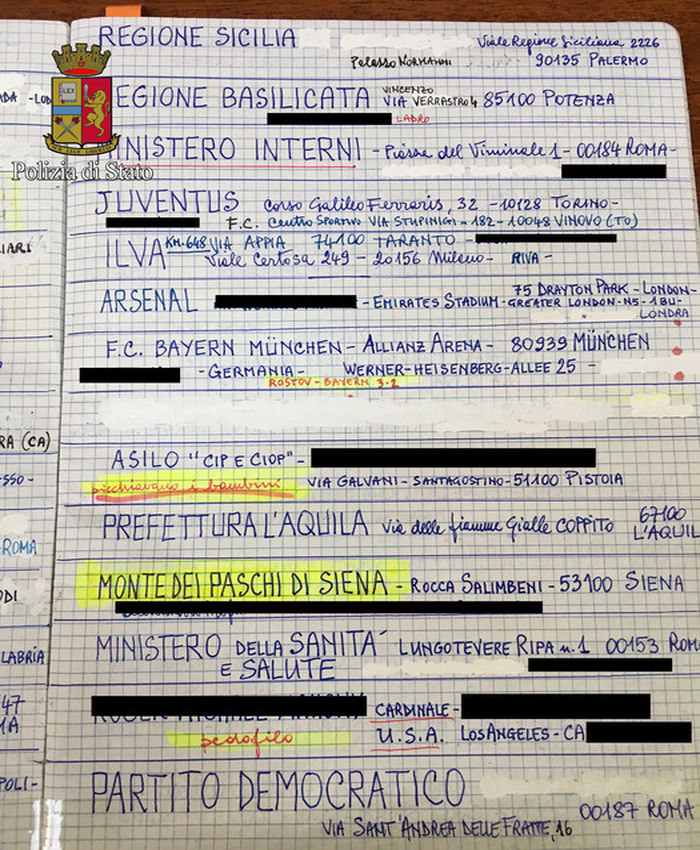 REGIONE SICILIA Viale Regione Siciliana 2226
Palasso Normanni 90135 PALERMO
EGIONE BASILICATA VINCENZO VIA VERRASTRO 4 85100 POTENZA
LADRO
INISTERO INTERNI - Piazza del Viminale 1 - 00184 ROMA -
Polizia di Stato
JUVENTUS Corso Galileo Ferraris, 32 - 10128 TORINO -
F.C. Centro Sportivo VIA STUPINIGI - 182 - 10048 VINOVO (TO)
ILVA KM. 648 VIA APPIA 74100 TARANTO -
Viale Certosa 249 - 20156 Milano - RIVA -
ARSENAL 75 DRAYTON PARK - LONDON -
- EMIRATES STADIUM - GREATER LONDON - N5 - 1BU -
LONDRA
F.C. BAYERN MÜNCHEN - ALLIANZ ARENA - 80939 MÜNCHEN
- GERMANIA - WERNER-HEISENBERG-ALLEE 25 -
ROSTOV - BAYERN 3-2
ASILO "CIP E CIOP" -
picchiavano i bambini VIA GALVANI - SANTAGOSTINO - 51100 PISTOIA
PREFETTURA L'AQUILA Via delle fiamme Gialle COPPITO 67100
L'AQUIL
MONTE DEI PASCHI DI SIENA - ROCCA SALIMBENI - 53100 SIENA
MINISTERO DELLA SANITÀ LUNGOTEVERE RIPA n. 1 00153 ROM
E SALUTE
CARDINALE -
pedofilo U.S.A. LOS ANGELES - CA
PARTITO DEMOCRATICO
00187 ROMA
VIA SANT'ANDREA DELLE FRATTE, 16
ADA - LOD
LIARI'
RA (CA)
SSO -
ROMA
ODI
LABRIA
47
MA
POLI -